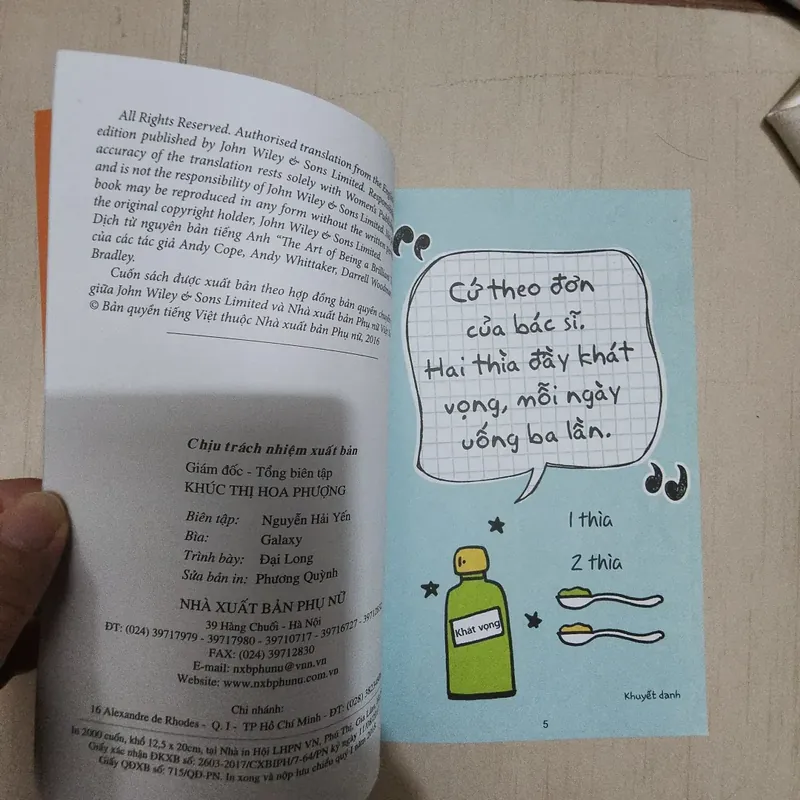 All Rights Reserved. Authorised translation from the
edition published by John Wiley & Sons Limited.
accuracy of the translation rests solely with Women's
and is not the responsibility of John Wiley & Sons Limited.
book may be reproduced in any form without the written
the original copyright holder, John Wiley & Sons Limited.
Dịch từ nguyên bản tiếng Anh "The Art of Being a
của các tác giả Andy Cope, Andy Whittaker, Darrell
Bradley.
Cuốn sách được xuất bản theo hợp đồng bản quyền
giữa John Wiley & Sons Limited và Nhà xuất bản Phụ nữ
© Bản quyền tiếng Việt thuộc Nhà xuất bản Phụ nữ, 2016
Chịu trách nhiệm xuất bản
Giám đốc - Tổng biên tập
KHÚC THỊ HOA PHƯỢNG
Biên tập: Nguyễn Hải Yến
Bìa: Galaxy
Trình bày: Đại Long
Sửa bản in: Phương Quỳnh
NHÀ XUẤT BẢN PHỤ NỮ
39 Hàng Chuối - Hà Nội
ĐT: (024) 39717979 - 39717980 - 39710717 - 39716727 -
FAX: (024) 39712830
E-mail: nxbphunu@vnn.vn
Website: www.nxbphunu.com.vn
Chi nhánh:
16 Alexandre de Rhodes - Q. 1 - TP Hồ Chí Minh - ĐT: (028)
In 2000 cuốn, khổ 12,5 x 20cm, tại Nhà in Hội LHPN VN, Phú Thị, Gia Lâm,
Giấy xác nhận ĐKXB số: 2603-2017/CXBIPH/7-64/PN ký ngày
Giấy QĐXB số: 715/QĐ-PN. In xong và nộp lưu chiểu quý I năm
"
Cứ theo đơn
của bác sĩ.
Hai thìa đầy khát
vọng, mỗi ngày
uống ba lần.
"
1 thìa
2 thìa
Khát vọng
Khuyết danh
5